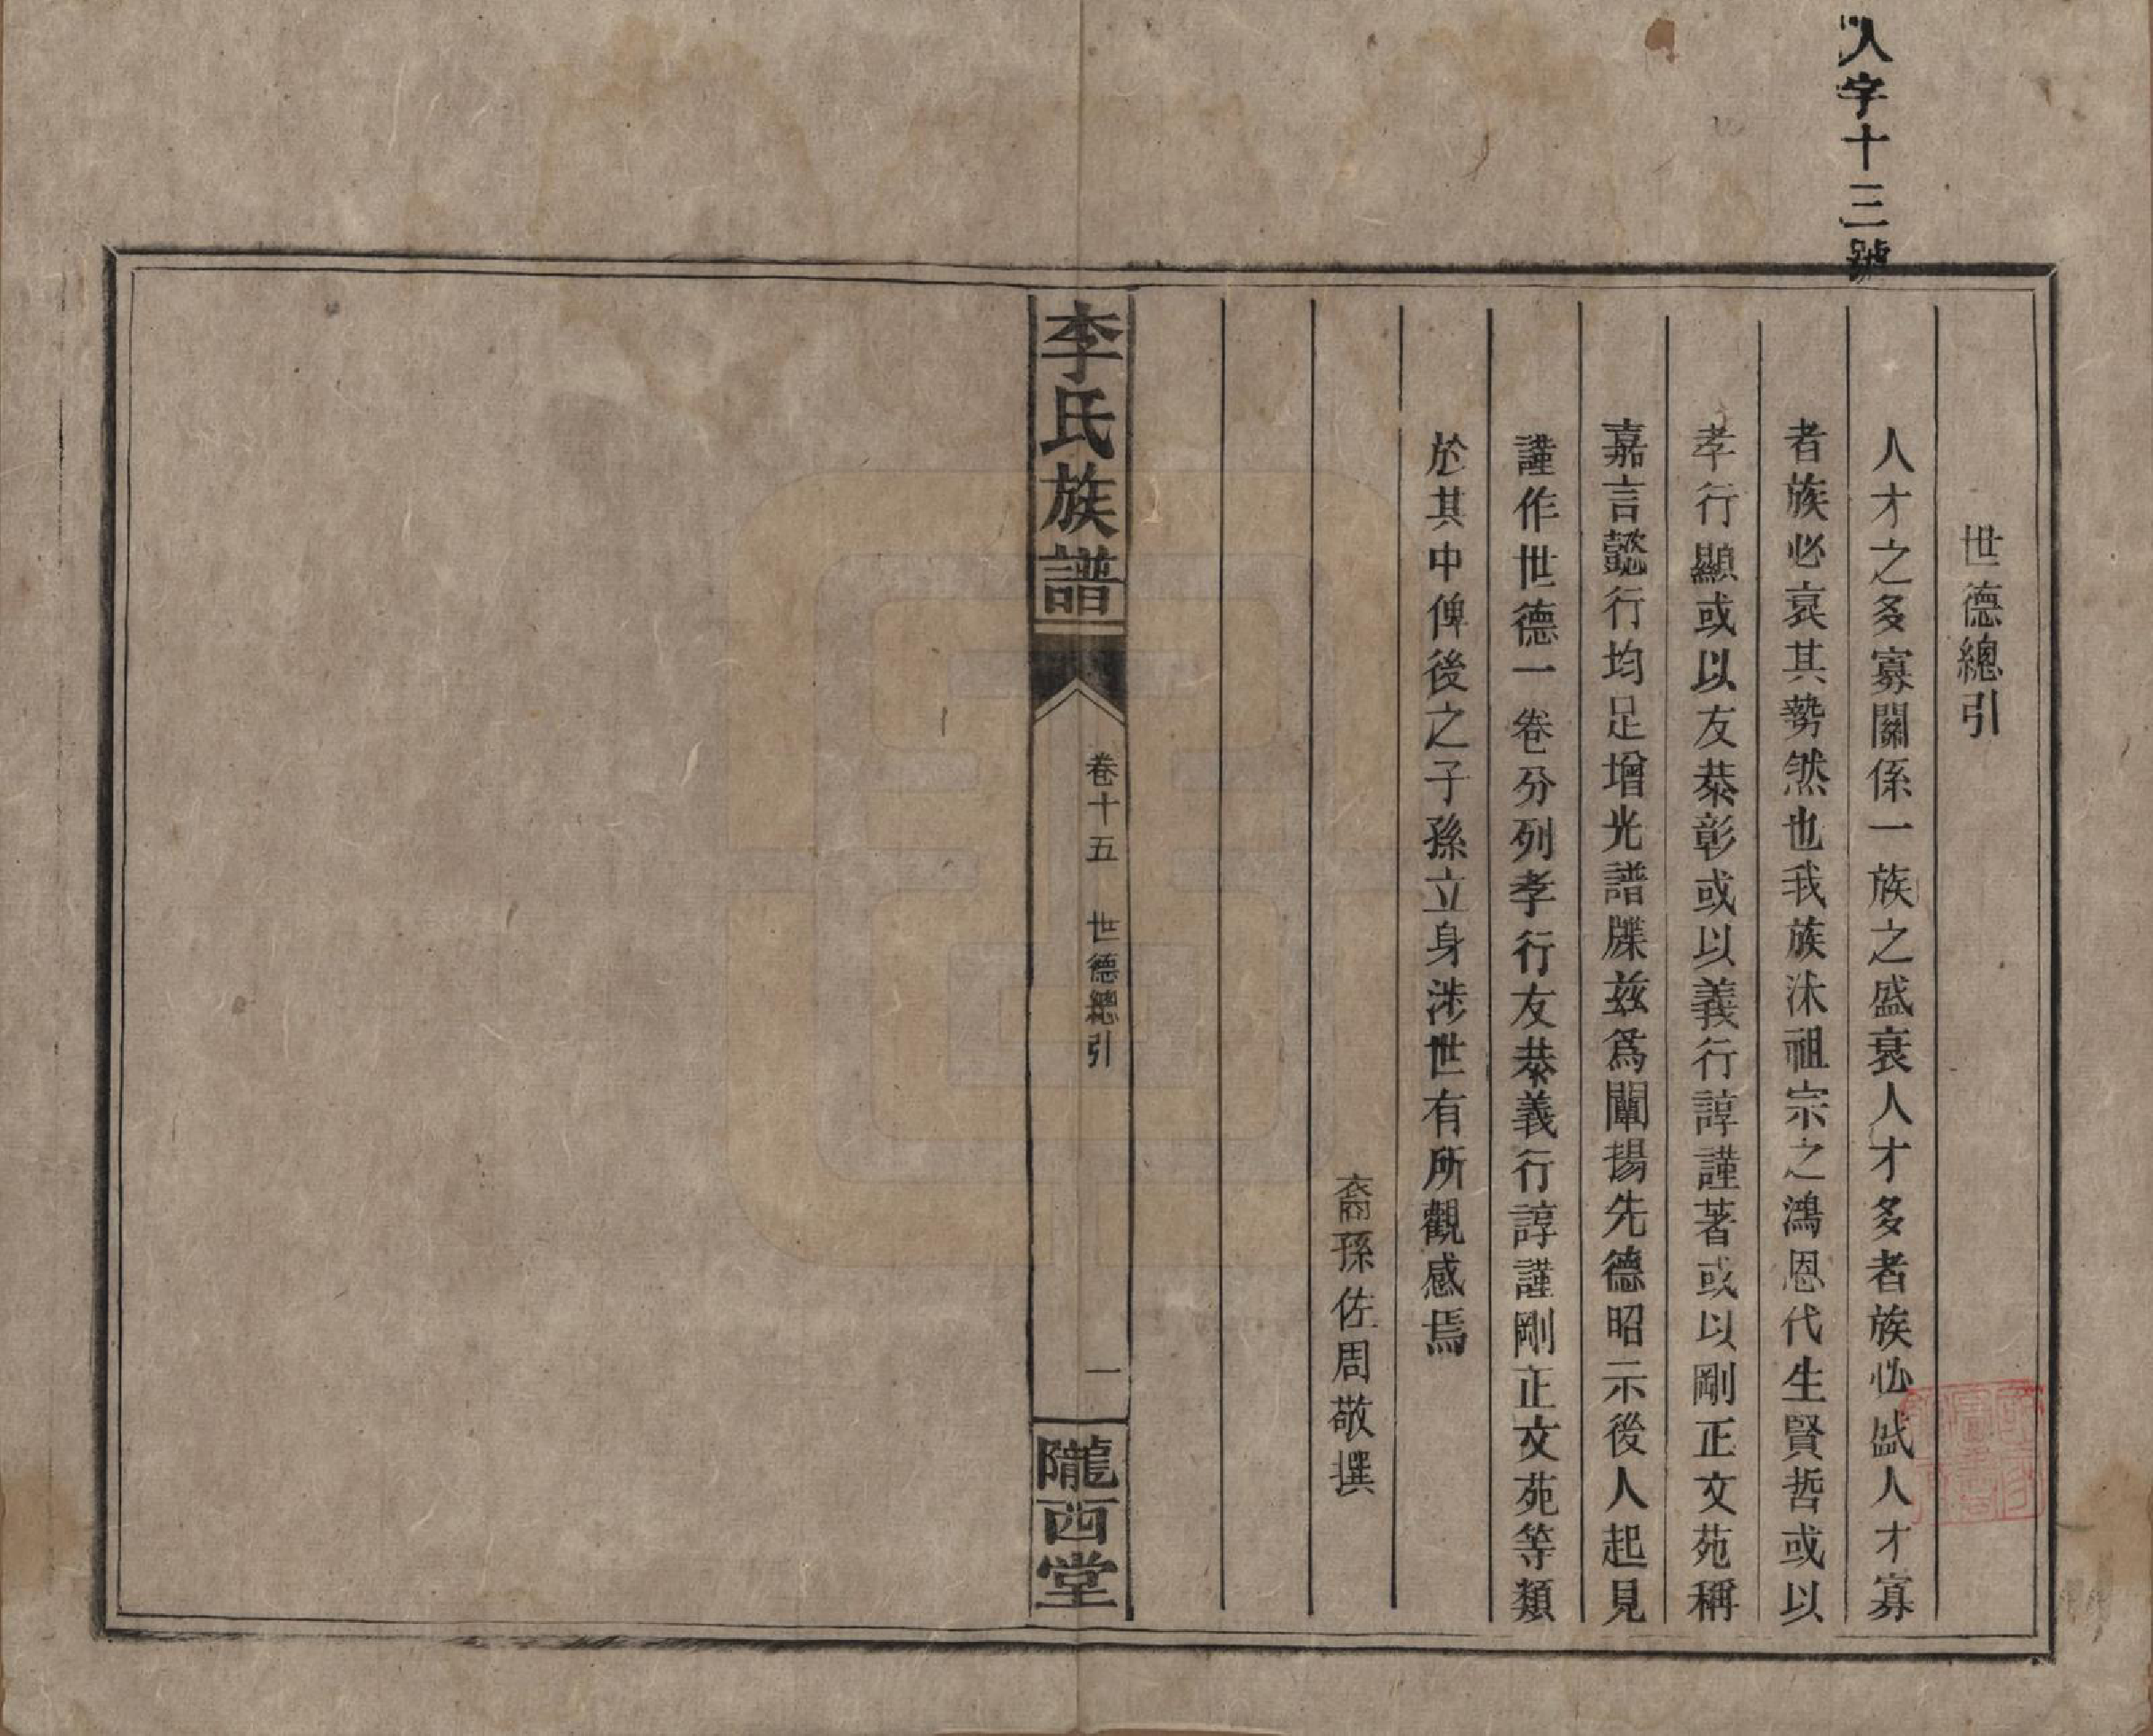 人字十三號
世德總引
人才之多寡關係一族之盛衰人才多者族必盛人才寡
者族必衰其勢然也我族沐祖宗之鴻恩代生賢哲或以
孝行顯或以友恭彰或以義行諄謹著或以剛正文苑稱
嘉言懿行均足增光譜牒兹爲闡揚先德昭示後人起見
謹作世德一卷分列孝行友恭義行諄謹剛正文苑等類
於其中俾後之子孫立身涉世有所觀感焉
裔孫佐周敬撰
李氏族譜
卷十五 世德總引
一
隴西堂